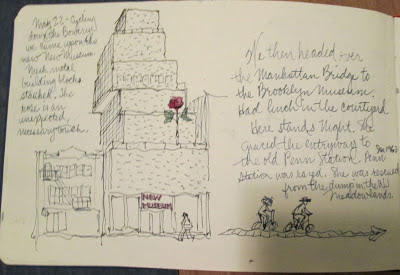 May 22 - Cycling
down the Bowery
we came upon the
new New Museum.
Mesh metal
building blocks
stacked. The
rose is an
unexpected,
necessary touch.
NEW
MUSEUM
We then headed over
the Manhattan Bridge to
the Brooklyn Museum.
Had lunch in the courtyard
Here stands Night. She
graced the entryway to
the old Penn Station. Penn
Station was razed. She was rescued
from the dump in the NJ
Meadowlands.